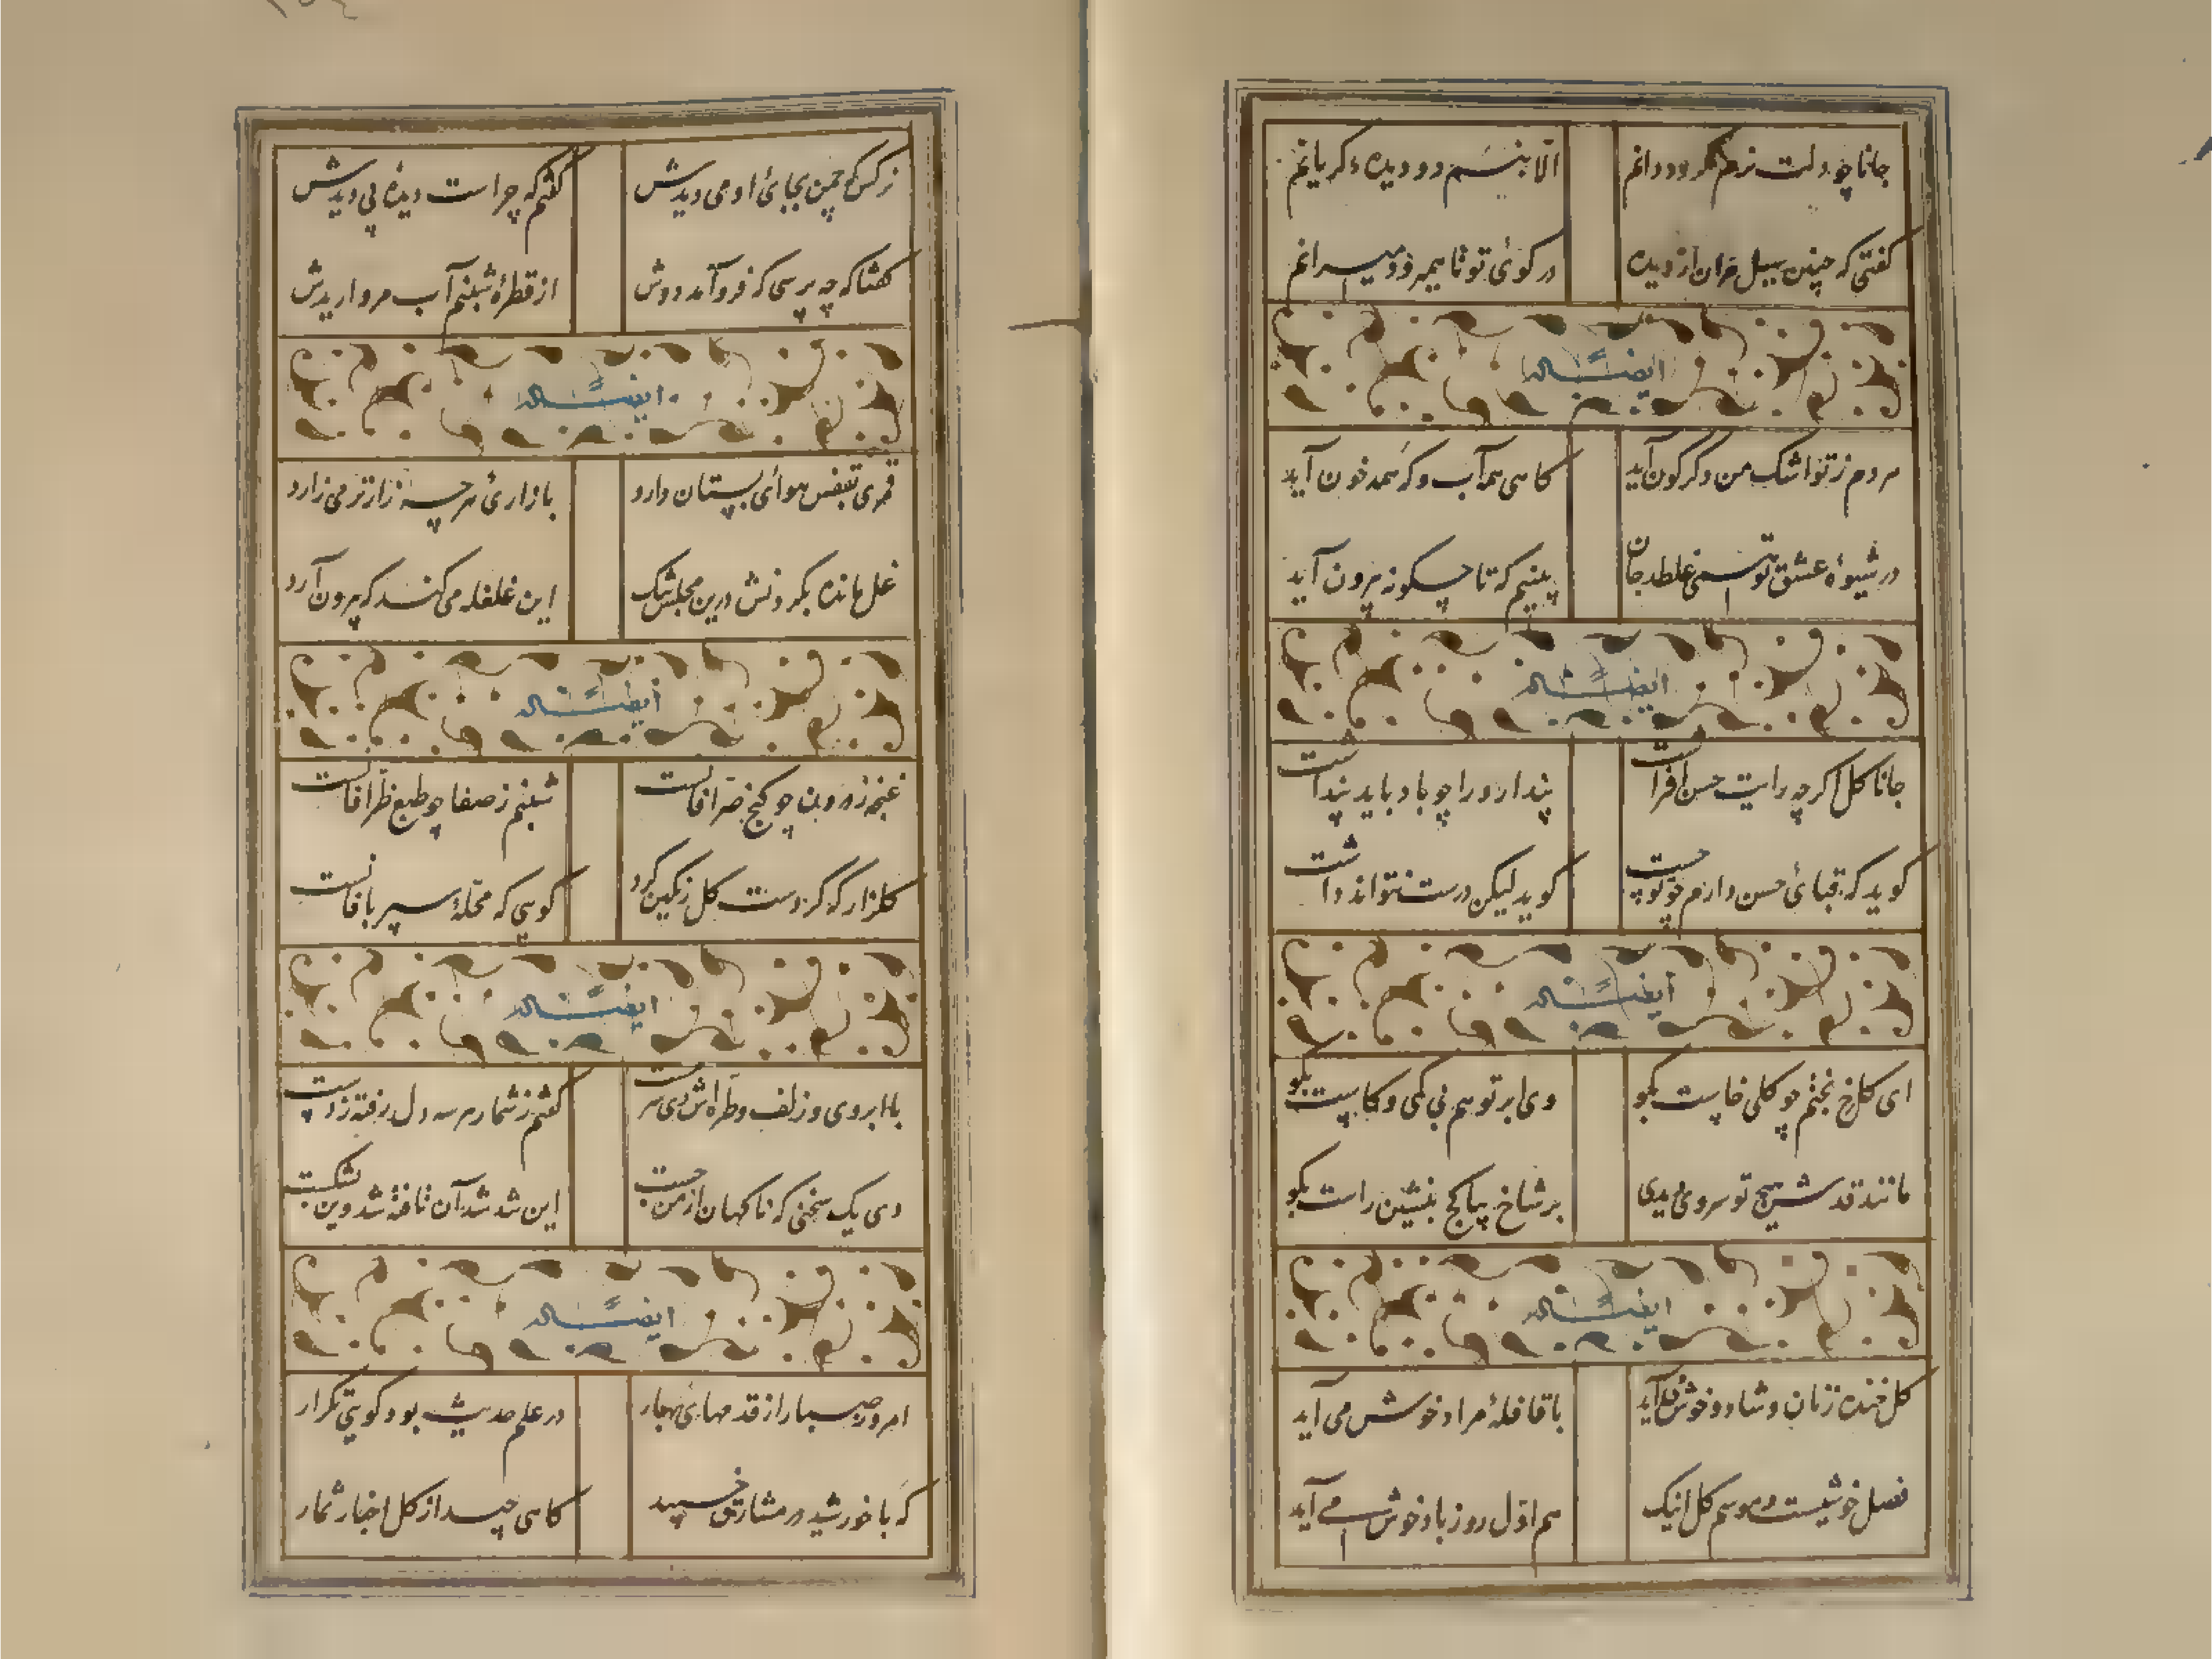 جانا چو دلت نرم نکرد و دانم الا بنسیم دو دیده گریانم
گفتی که چنین سیل مران از دیده در کوئی تو تا همه فرو میرانم
ایضاً له
مردم ز تو اشک من دگرگون آید گاهی همه آب و گه همه خون آید
در شیوهٔ عشق تو همی غلطد جان بینیم که تا چگونه بیرون آید
ایضاً له
جانا گل اگر چه رایت حسن افراشت پندار ورا چو باد باید پنداشت
گوید که قبائی حسن دارم چو تو چست گوید لیکن درست نتواند داشت
ایضاً له
ای گل رخ بختم چو گلی خاست بگو وی ابر تو هم بی کمی و کاست بگو
مانند قد تو سروی دیدی بر شاخ بیا کج بنشین راست بگو
ایضاً له
گل خنده زنان و شاد و خوش می آید با قافلهٔ مراد خوش می آید
فصل خوشیست و موسم گل اینک هم اول روز باد خوش می آید
نرگس که چمن بجائی او می دیدش گفتم که چراست دیده بی دیدش
گفتا که چه پرسی که فرو آمد دوش از قطرهٔ شبنم آب مرواریدش
ایضاً له
قمری بقفس هوائی بستان دارد با زاریٔ هرچه زارتر می زارد
غل مانده بگردنش درین مجلس تنگ این غلغله می کند که بیرون آرد
ایضاً له
غنچه ز درون چو گنج صرافانست شبنم ز صفا چو طبع ظرافانست
گلزار که گرد دست گل رنگین کرد گویی که محلهٔ سیربافانست
ایضاً له
با ابروی و زلف و طره اش دی سر مست گفتم ز شمار هر سه دل رفته ز دست
دی یک سخنی که ناگهان از من جست این شد شد آن تافته شد وین بشکست
ایضاً له
امروز صبا را ز قدمهائی بهار در علم حدیث بود گویی تکرار
گه با خورشید در مشارق خسپید گاهی چید از گل اخبار ثمار